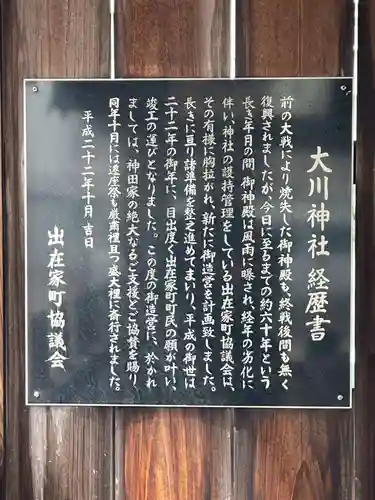 大川神社 経歴書
前の大戦により焼失した御神殿も、終戦後間も無く
復興されましたが、今日に至るまでの約六十年という
長き年月の間、御神殿は風雨に曝され、経年の劣化に
伴い、神社の護持管理をしている出在家町協議会は、
その有様に胸拉がれ、新たに御造営を計画致しました。
長きに亘り諸準備を整え進めてまいり、平成の御世は
二十二年の御年に、目出度く出在家町町民の願が叶い、
竣工の運びとなりました。この度の御造営に、於かれ
ましては、神田家の絶大なるご支援とご協賛を賜り、
同年十月には遷座祭も厳粛裡且つ盛大裡に斎行されました。
平成二十二年十月 吉日
出在家町協議会